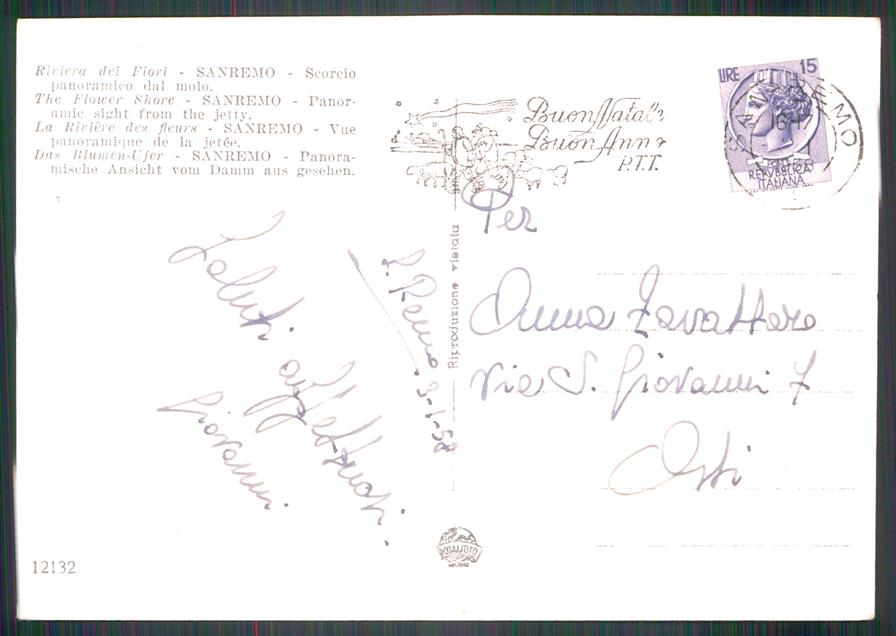 Riviera dei Fiori - SANREMO - Scorcio
panoramico dal molo.
The Flower Shore - SANREMO - Panor-
amic sight from the jetty.
La Rivière des fleurs - SANREMO - Vue
panoramique de la jetée.
Das Blumen-Ufer - SANREMO - Panora-
mische Ansicht vom Damm aus gesehen.
Buon Natale
Buon Anno
P.T.T.
LIRE 15
REPVBBLICA
ITALIANA
SANREMO
16-17
Saluti affettuosi
Giovanni
S. Remo 3-1-58
Riproduzione vietata
Per
Anna Zavattaro
Via S. Giovanni 7
Asti
12132